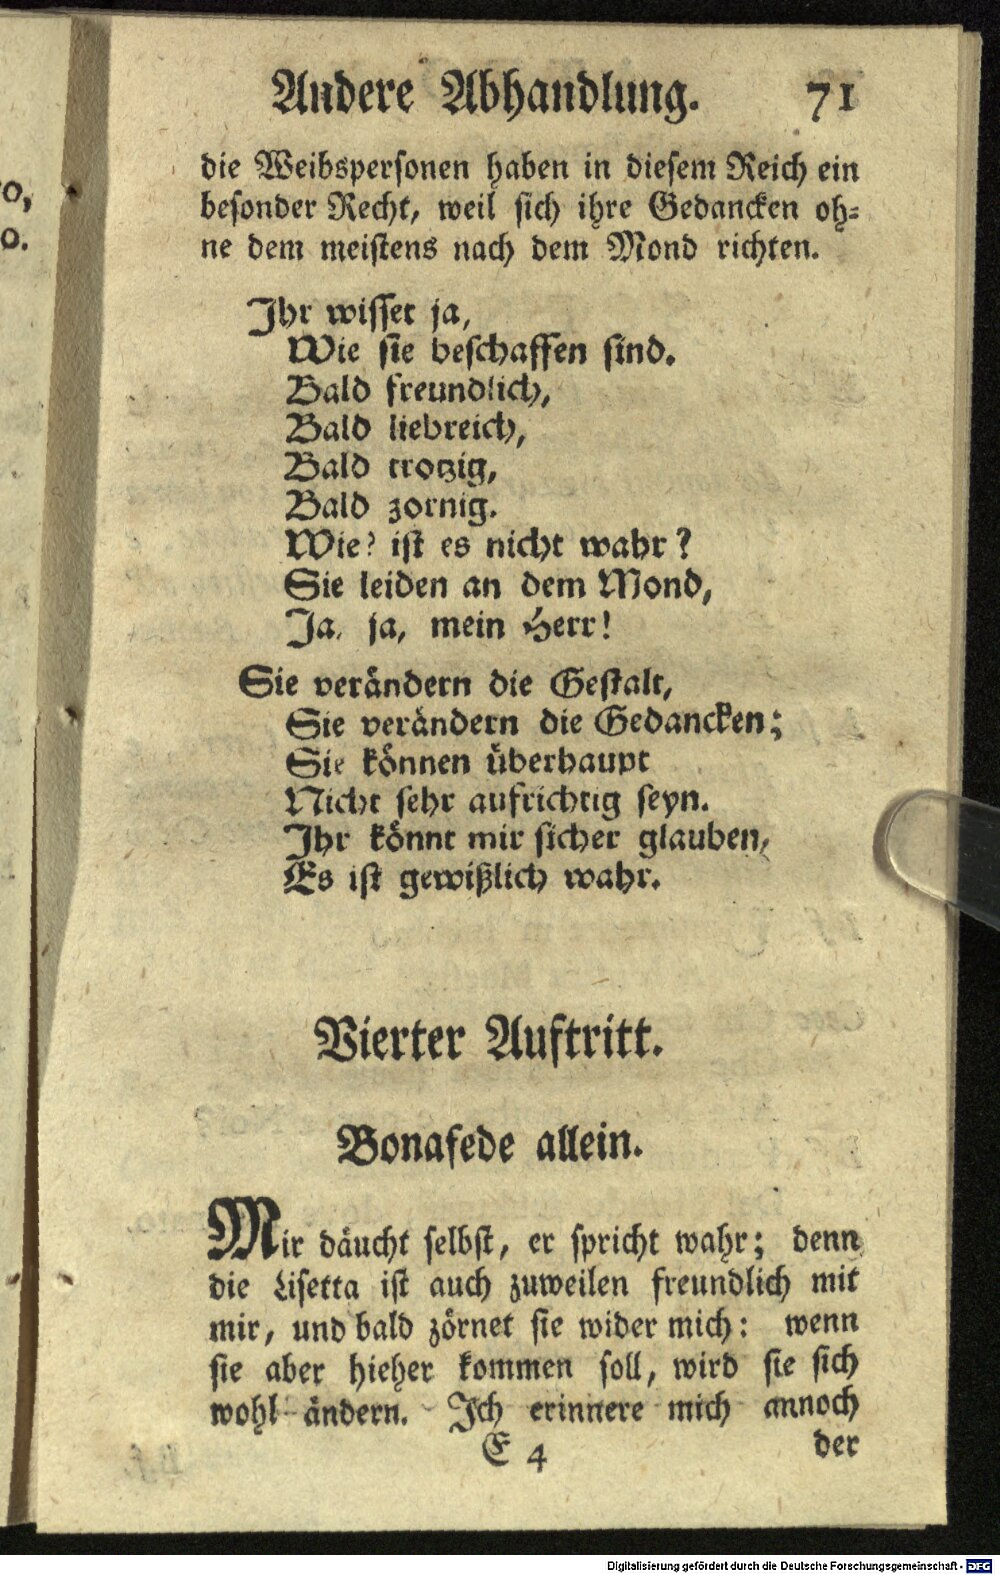 o,
o.
Andere Abhandlung. 71
die Weibspersonen haben in diesem Reich ein
besonder Recht, weil sich ihre Gedancken oh=
ne dem meistens nach dem Mond richten.
Ihr wisset ja,
Wie sie beschaffen sind.
Bald freundlich,
Bald liebreich,
Bald trotzig,
Bald zornig.
Wie? ist es nicht wahr?
Sie leiden an dem Mond,
Ja, ja, mein Herr!
Sie verändern die Gestalt,
Sie verändern die Gedancken;
Sie können überhaupt
Nicht sehr aufrichtig seyn.
Ihr könnt mir sicher glauben,
Es ist gewißlich wahr.
Vierter Auftritt.
Bonafede allein.
Mir däucht selbst, er spricht wahr; denn
die Lisetta ist auch zuweilen freundlich mit
mir, und bald zörnet sie wider mich: wenn
sie aber hieher kommen soll, wird sie sich
wohl ändern. Ich erinnere mich annoch
E 4 der
Digitalisierung gefördert durch die Deutsche Forschungsgemeinschaft - DFG